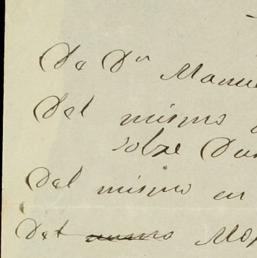 De Dn Manue
Del mismo
sobre Dua
Del mismo en
Del mismo Mo